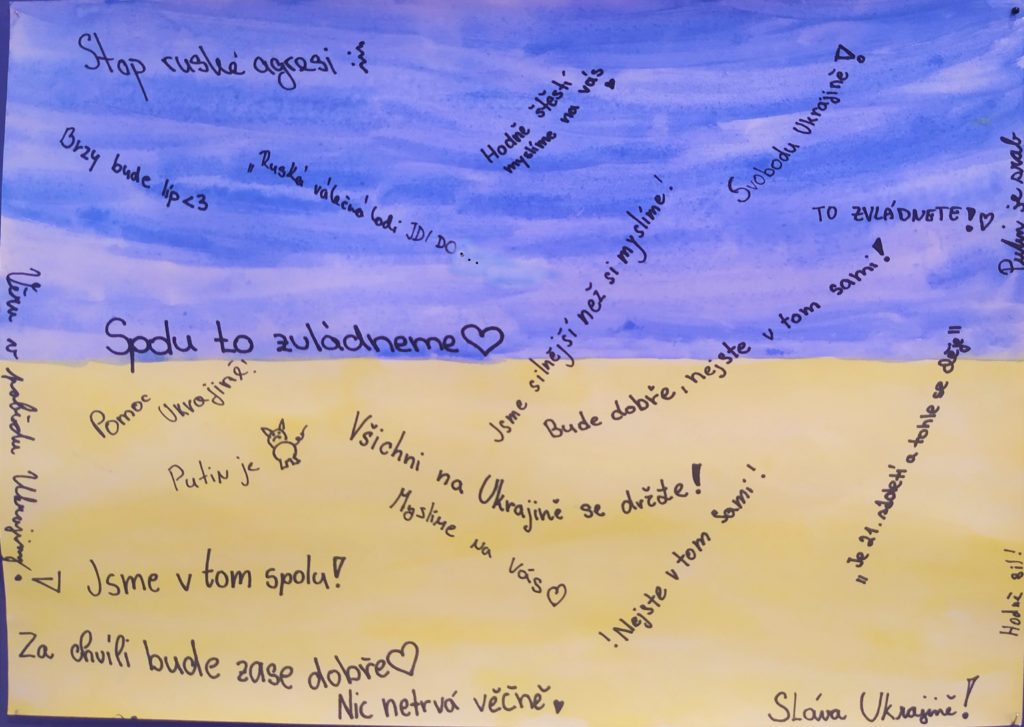 Stop ruské agresi
Hodně štěstí
myslíme na vás
Svobodu Ukrajině!
Brzy bude líp <3
"Ruská válečná lodi JDI DO...
TO ZVLÁDNETE!
Putin je srab
Jsme silnější než si myslíme!
Bude dobře, nejste v tom sami!
Spolu to zvládneme
Věřím v pobidu Ukrajiny!
Pomoc
Ukrajině!
Putin je
Všichni na Ukrajině se držte!
Myslíme na vás
!Nejste v tom sami!
"Je 21. století a tohle se děje"
Jsme v tom spolu!
Hodně sil!
Za chvíli bude zase dobře
Nic netrvá věčně
SLáva Ukrajině!